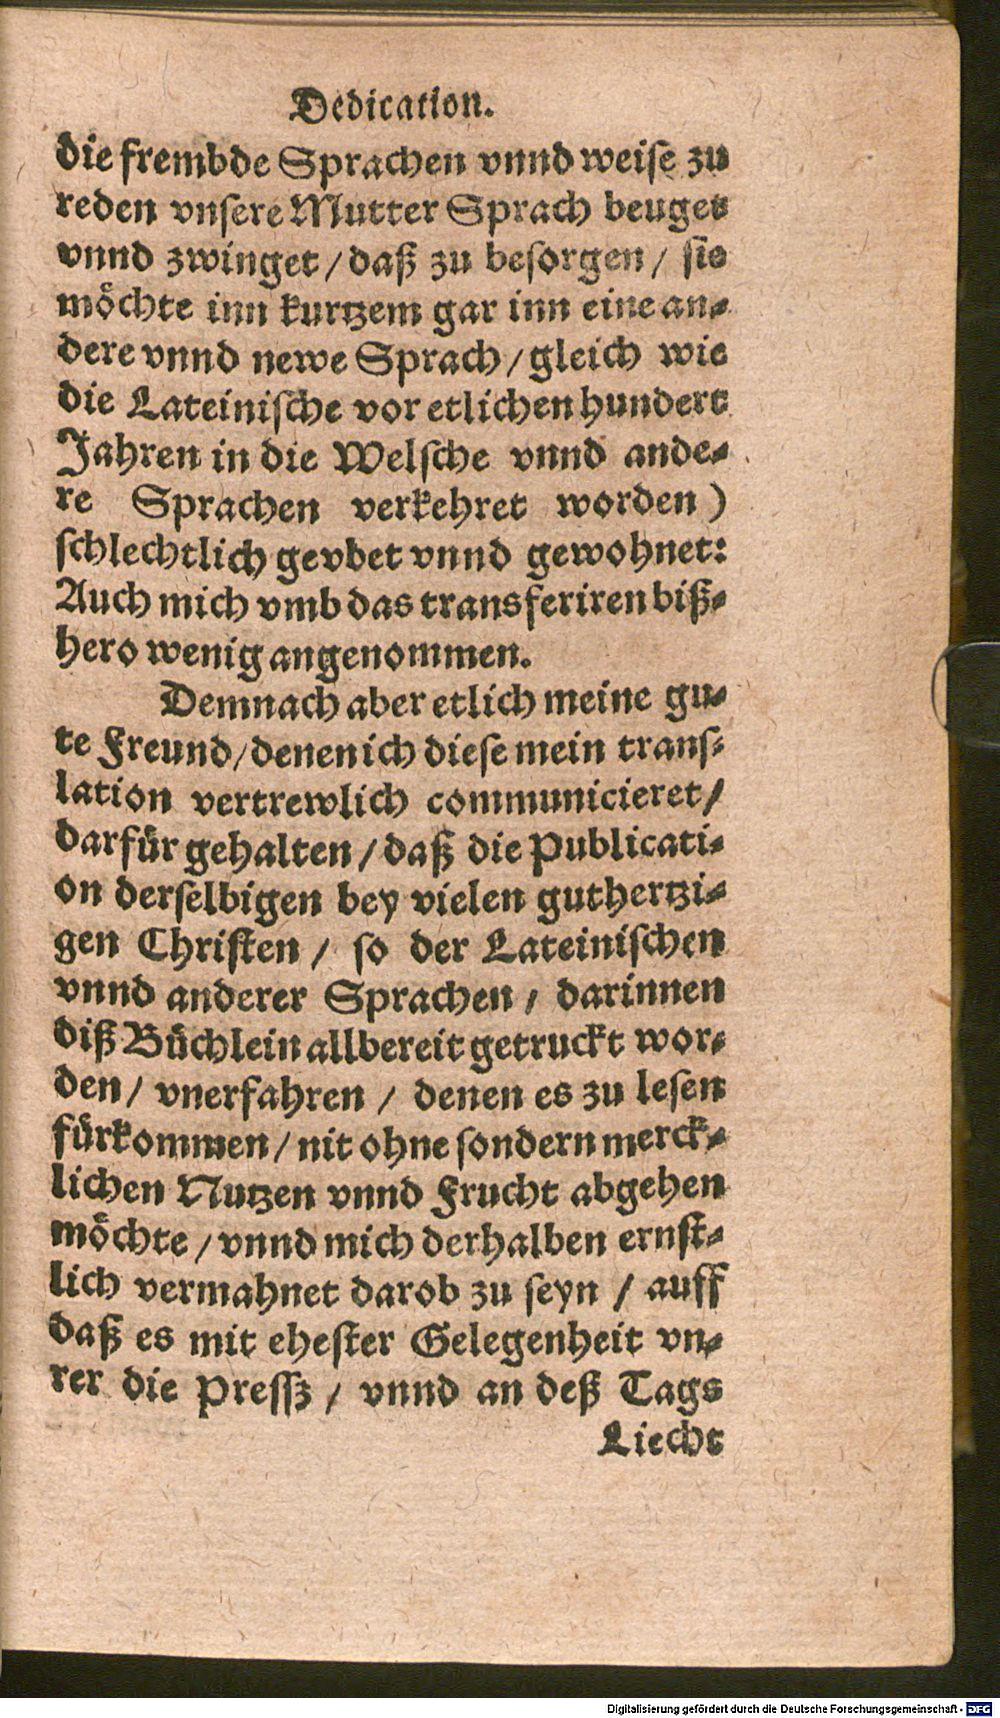 Dedication.
die frembde Sprachen vnnd weise zu
reden vnsere Mutter Sprach beuget
vnnd zwinget / daß zu besorgen / sie
möchte inn kurtzem gar inn eine an-
dere vnnd newe Sprach / gleich wie
die Lateinische vor etlichen hundert
Jahren in die Welsche vnnd ande-
re Sprachen verkehret worden )
schlechtlich gevbet vnnd gewohnet:
Auch mich vmb das transferiren biß-
hero wenig angenommen.
Demnach aber etlich meine gu-
te Freund / denen ich diese mein trans-
lation vertrewlich communicieret /
darfür gehalten / daß die Publicati-
on derselbigen bey vielen guthertzi-
gen Christen / so der Lateinischen
vnnd anderer Sprachen / darinnen
diß Büchlein allbereit getruckt wor-
den / vnerfahren / denen es zu lesen
fürkommen / nit ohne sondern merck-
lichen Nutzen vnnd Frucht abgehen
möchte / vnnd mich derhalben ernst-
lich vermahnet darob zu seyn / auff
daß es mit ehester Gelegenheit vn-
rer die Pressz / vnnd an deß Tags
Liecht
Digitalisierung gefördert durch die Deutsche Forschungsgemeinschaft - DFG